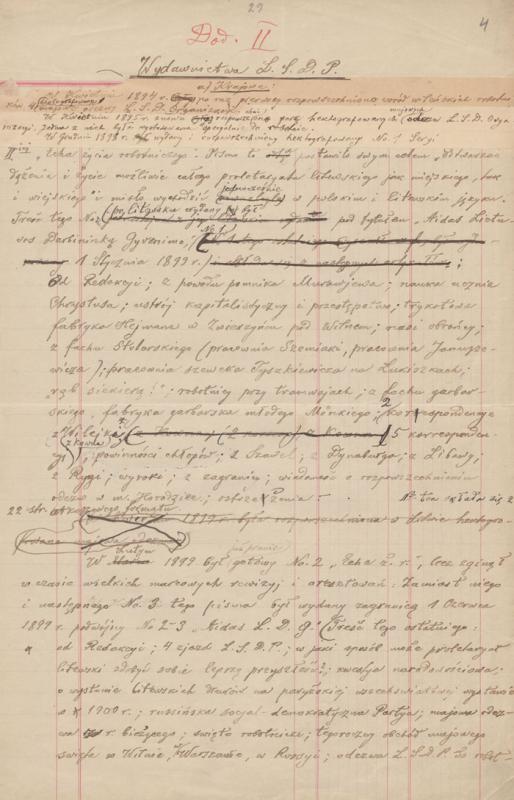 29
4
Dod. II
Wydawnictwa L. S. D. P.
a) Krajowe:
W Kwietniu 1894 r. po raz pierwszy rozpowszechniono wśród wileńskich robotni-
ków hektografowaną odezwę L.S.D. Organizacyi
W Kwietniu 1895 r. znowu rozpowszechniono parę hektografowanych odezw L.S.D. Orga
nizacyi. Jedna z nich była
W Grudniu 1898 r. wydany i rozpowszechniony hektografowany No. 1 Seryi
II "Echa życia robotniczego". Pismo to postawiło swym celem "Odtwarzać
dążenia i życie możliwie całego proletaryatu litewskiego jak miejskiego, tak
i wiejskiego" i miało wychodzić jednocześnie w polskim i litewskim języku.
Treść tego No: (po litewsku wydany był pod tytułem "Aidas Lietu
vos Darbininkų Gyvenimo," No. 1
1 Stycznia 1899 r.) ;
Od Redakcyi; z powodu pomnika Murawjewa; nauka ucznia
Chrystusa; ustrój kapitalistyczny i przestępstwa; trykotowa
fabryka Hejmana w Zwierzyńcu pod Wilnem; nasi obrońcy;
z fachu stolarskiego (pracownia Szemiaki, pracownia Janusze-
wicza); pracownia szewcka Tyszkiewicza na Łukiszkach;
"rżb siekierą!"; robotnicy przy tramwajach; z fachu garbar-
skiego, fabryka garbarska młodego Mońkiego; 2 korrespondencye
z Wilejki; (z Kowna) 5 korresponden-
cyj; powinności chłopów; z Szawel; z Dynaburga; z Libawy;
z Rygi; wyroki; z zagranicy; wiadomość o rozpowszechnieniu
odezw w m. Horodziec; ostrzeżenia. № ten składa się z
22 str. ćwiartkowego formatu
1899 r. była rozpowszechniona w Litwie hektogra-
fowana majowa odezwa
W Lutym 1899 był gotowy No. 2 "Echa ż. r.", lecz zginął
w czasie wielkich marcowych rewizyj i aresztowań. Zamiast niego
i następnego No. 3 tego pisma był wydany zagranicą 1 Czerwca
1899 r. podwójny No 2-3 "Aidas L. D. G." (Treść tego ostatniego:
od Redakcyi; 4 zjazd L.S.D.P.; w jaki sposób może proletaryat
litewski zdobyć sobie lepszą przyszłość?; kwestya narodowościowa;
o wystawie litewskich druków na paryskiej wszechświatowej wystawie
w 1900 r.; rusińska socyal-demokratyczna Partya; majowa odez-
wa r. bieżącego; święto robotnicze; tegoroczny obchód majowego
święta w Wilnie, w Warszawie, w Rossyi; odezwa L.S.D.P. do robot-